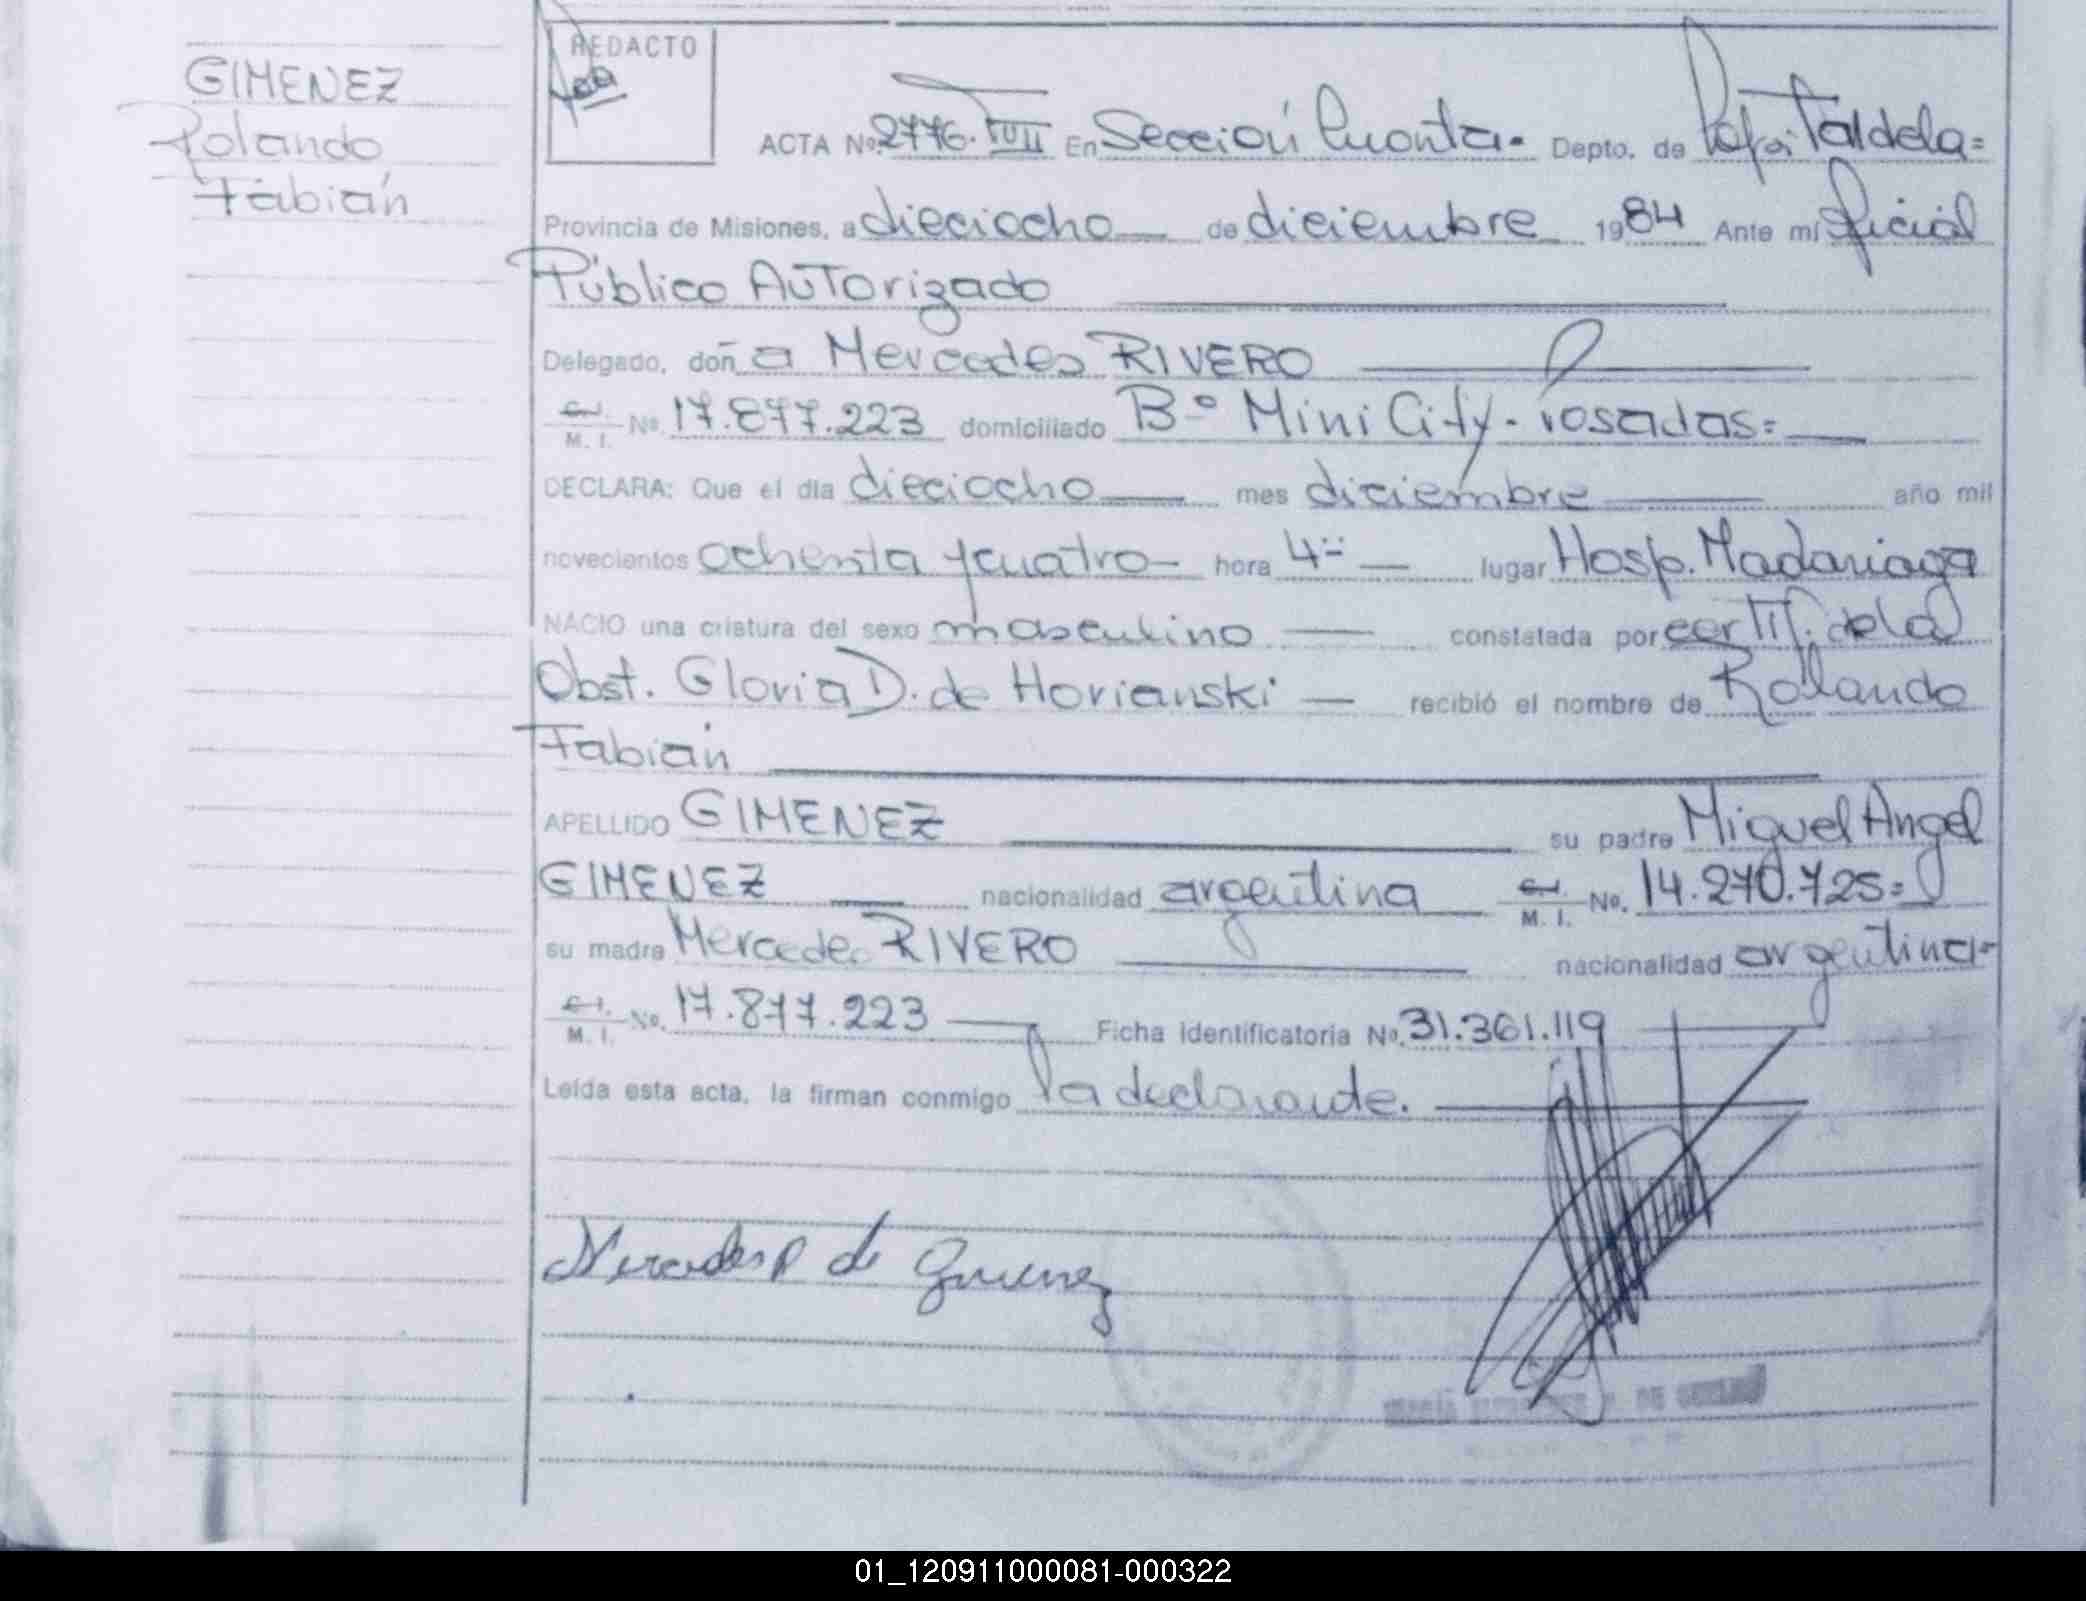 GIMENEZ
Rolando
Fabián
REDACTO
ACTA Nº 2776. TVII En Sección Cuarta.- Depto. de Capital dela=
Provincia de Misiones, a dieciocho de diciembre 1984 Ante mí Oficial
Público Autorizado
Delegado, doña Mercedes RIVERO
C.I. M. I. Nº 17.877.223 domiciliado Bº Mini City - rosadas=
DECLARA: Que el día dieciocho mes diciembre año mil
novecientos ochenta y cuatro hora 4 lugar Hosp. Madariaga
NACIO una criatura del sexo masculino constatada por certif. de la
Obst. Gloria D. de Horianski recibió el nombre de Rolando
Fabián
APELLIDO GIMENEZ su padre Miguel Angel
GIMENEZ nacionalidad argentina C.I. M. I. Nº. 14.270.725=
su madre Mercedes RIVERO nacionalidad argentina-
C.I. M. I. Nº. 17.877.223 Ficha identificatoria Nº. 31.361.119
Leída esta acta, la firman conmigo la declarante.
Mercedes R de Gimenez
01_120911000081-000322